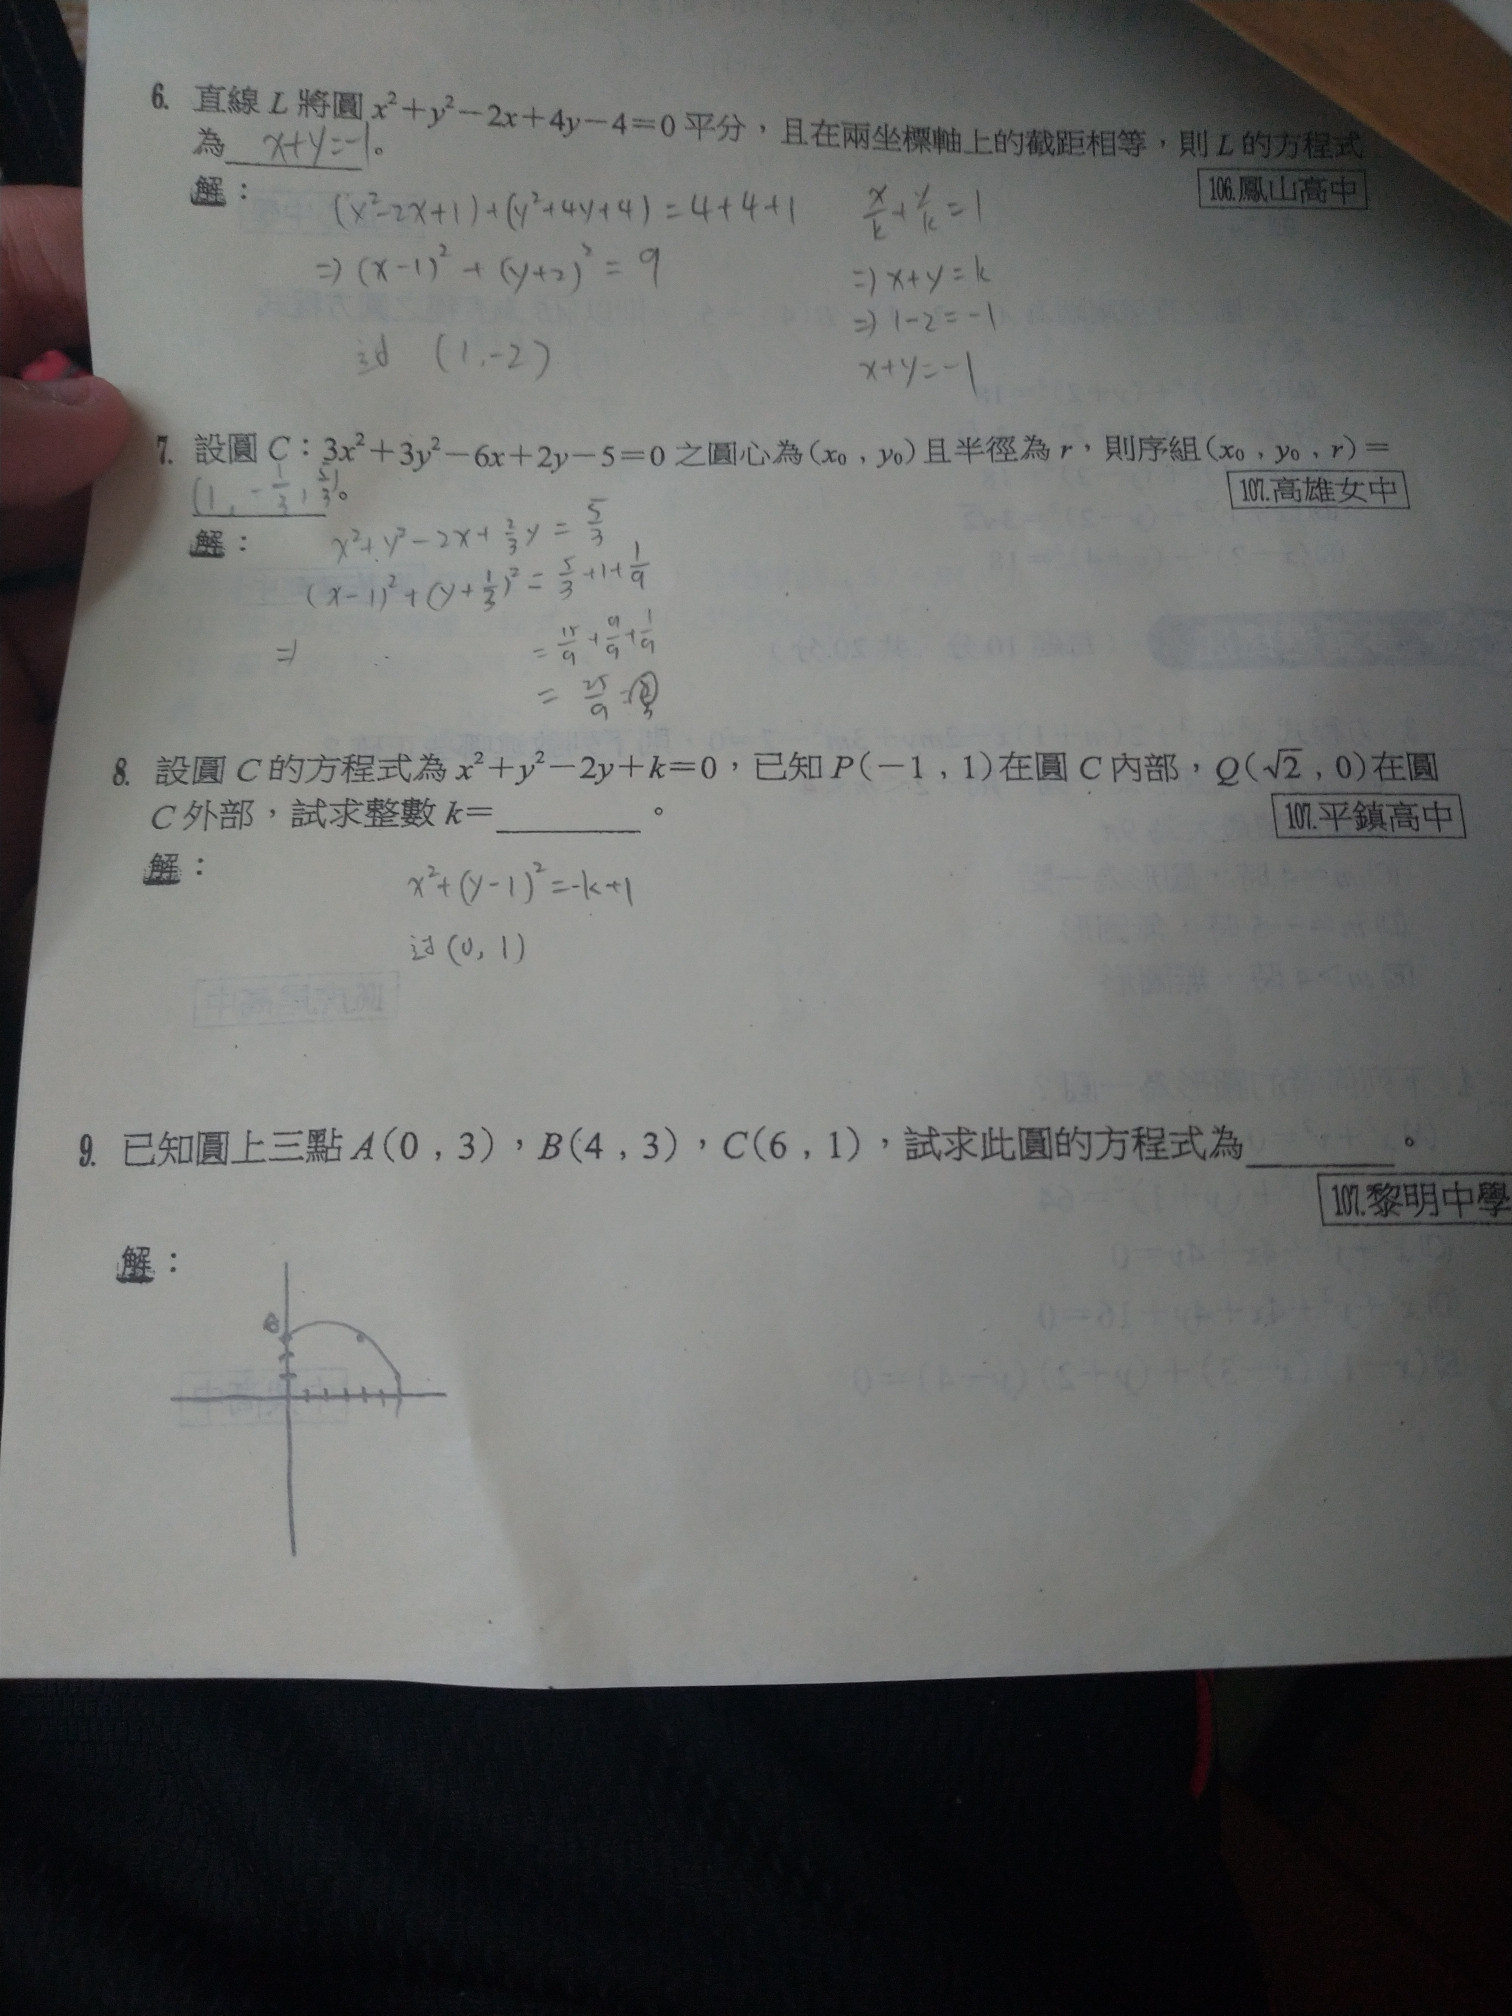 6. 直線 L 將圓 x²+y²−2x+4y−4=0 平分，且在兩坐標軸上的截距相等，則 L 的方程式
為 x+y=-1。
106.鳳山高中
解：
(x²-2x+1)+(y²+4y+4)=4+4+1
⇒(x-1)²+(y+2)²=9
过 (1,-2)
x/k+y/k=1
⇒x+y=k
⇒1-2=-1
x+y=-1
7. 設圓 C：3x²+3y²−6x+2y−5=0 之圓心為(x₀，y₀)且半徑為 r，則序組(x₀，y₀，r)=
(1, -1/3, 5/3)。
107.高雄女中
解：
x²+y²-2x+2/3y=5/3
(x-1)²+(y+1/3)²=5/3+1+1/9
⇒ =15/9+9/9+1/9
=25/9
8. 設圓 C 的方程式為 x²+y²−2y+k=0，已知 P(−1，1)在圓 C 內部，Q(√2，0)在圓
C 外部，試求整數 k=________。
107.平鎮高中
解：
x²+(y-1)²=-k+1
过(0,1)
9. 已知圓上三點 A(0，3)，B(4，3)，C(6，1)，試求此圓的方程式為________。
107.黎明中學
解：